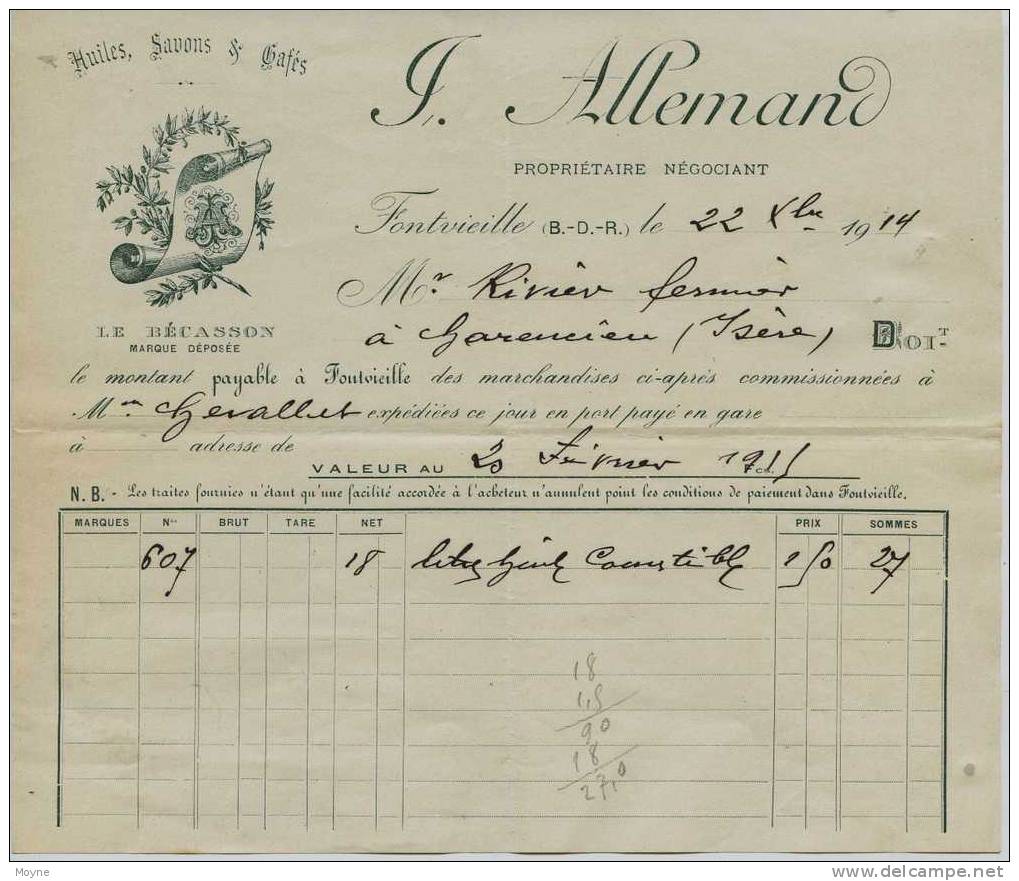 Huiles, Savons & Cafés
J. Allemand
PROPRIÉTAIRE NÉGOCIANT
Fontvieille (B.-D.-R.) le 22 Xbre 1914
Mr Rivier fermier
à (Isère) DOIT
LE BÉCASSON
MARQUE DÉPOSÉE
le montant payable à Fontvieille des marchandises ci-après commissionnées à
M Chevallet expédiées ce jour en port payé en gare
à adresse de
VALEUR AU 20 Février 1915
N. B. - Les traites fournies n'étant qu'une facilité accordée à l'acheteur n'annulent point les conditions de paiement dans Fontvieille.
MARQUES Nos BRUT TARE NET PRIX SOMMES
607 18 litres huile Comestible 1 50 27
18
1,5
90
18
27,0
Moyne
delcampe.net